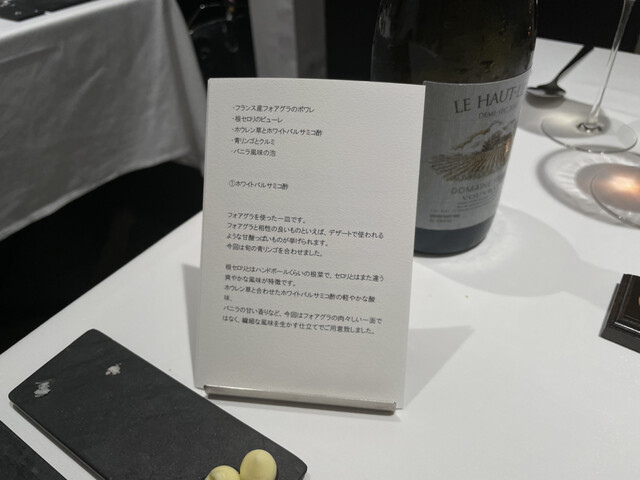 ・フランス産フォアグラのポワレ
・根セロリのピューレ
・ホウレン草とホワイトバルサミコ酢
・青リンゴとクルミ
・バニラ風味の泡
①ホワイトバルサミコ酢
フォアグラを使った一皿です。
フォアグラと相性の良いものといえば、デザートで使われる
ような甘酸っぱいものが挙げられます。
今回は旬の青リンゴを合わせました。
根セロリとはハンドボールくらいの根菜で、セロリとはまた違う
爽やかな風味が特徴です。
ホウレン草と合わせたホワイトバルサミコ酢の軽やかな酸
味、
バニラの甘い香りなど、今回はフォアグラの肉々しい一面で
はなく、繊細な風味を生かす仕立てでご用意致しました。
LE HAUT-L
DEMI-
DOMAINE